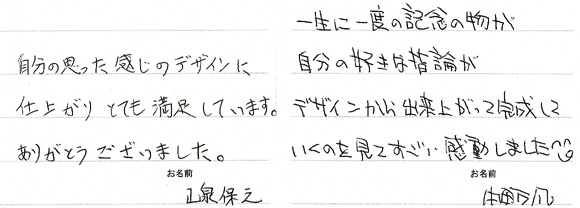 自分の思った感じのデザインに
仕上がり とても満足しています。
ありがとうございました。
お名前
一生に一度の記念の物が
自分の好きな指論が
デザインから出来上がって完成して
いくのを見てすごい感動しました
お名前